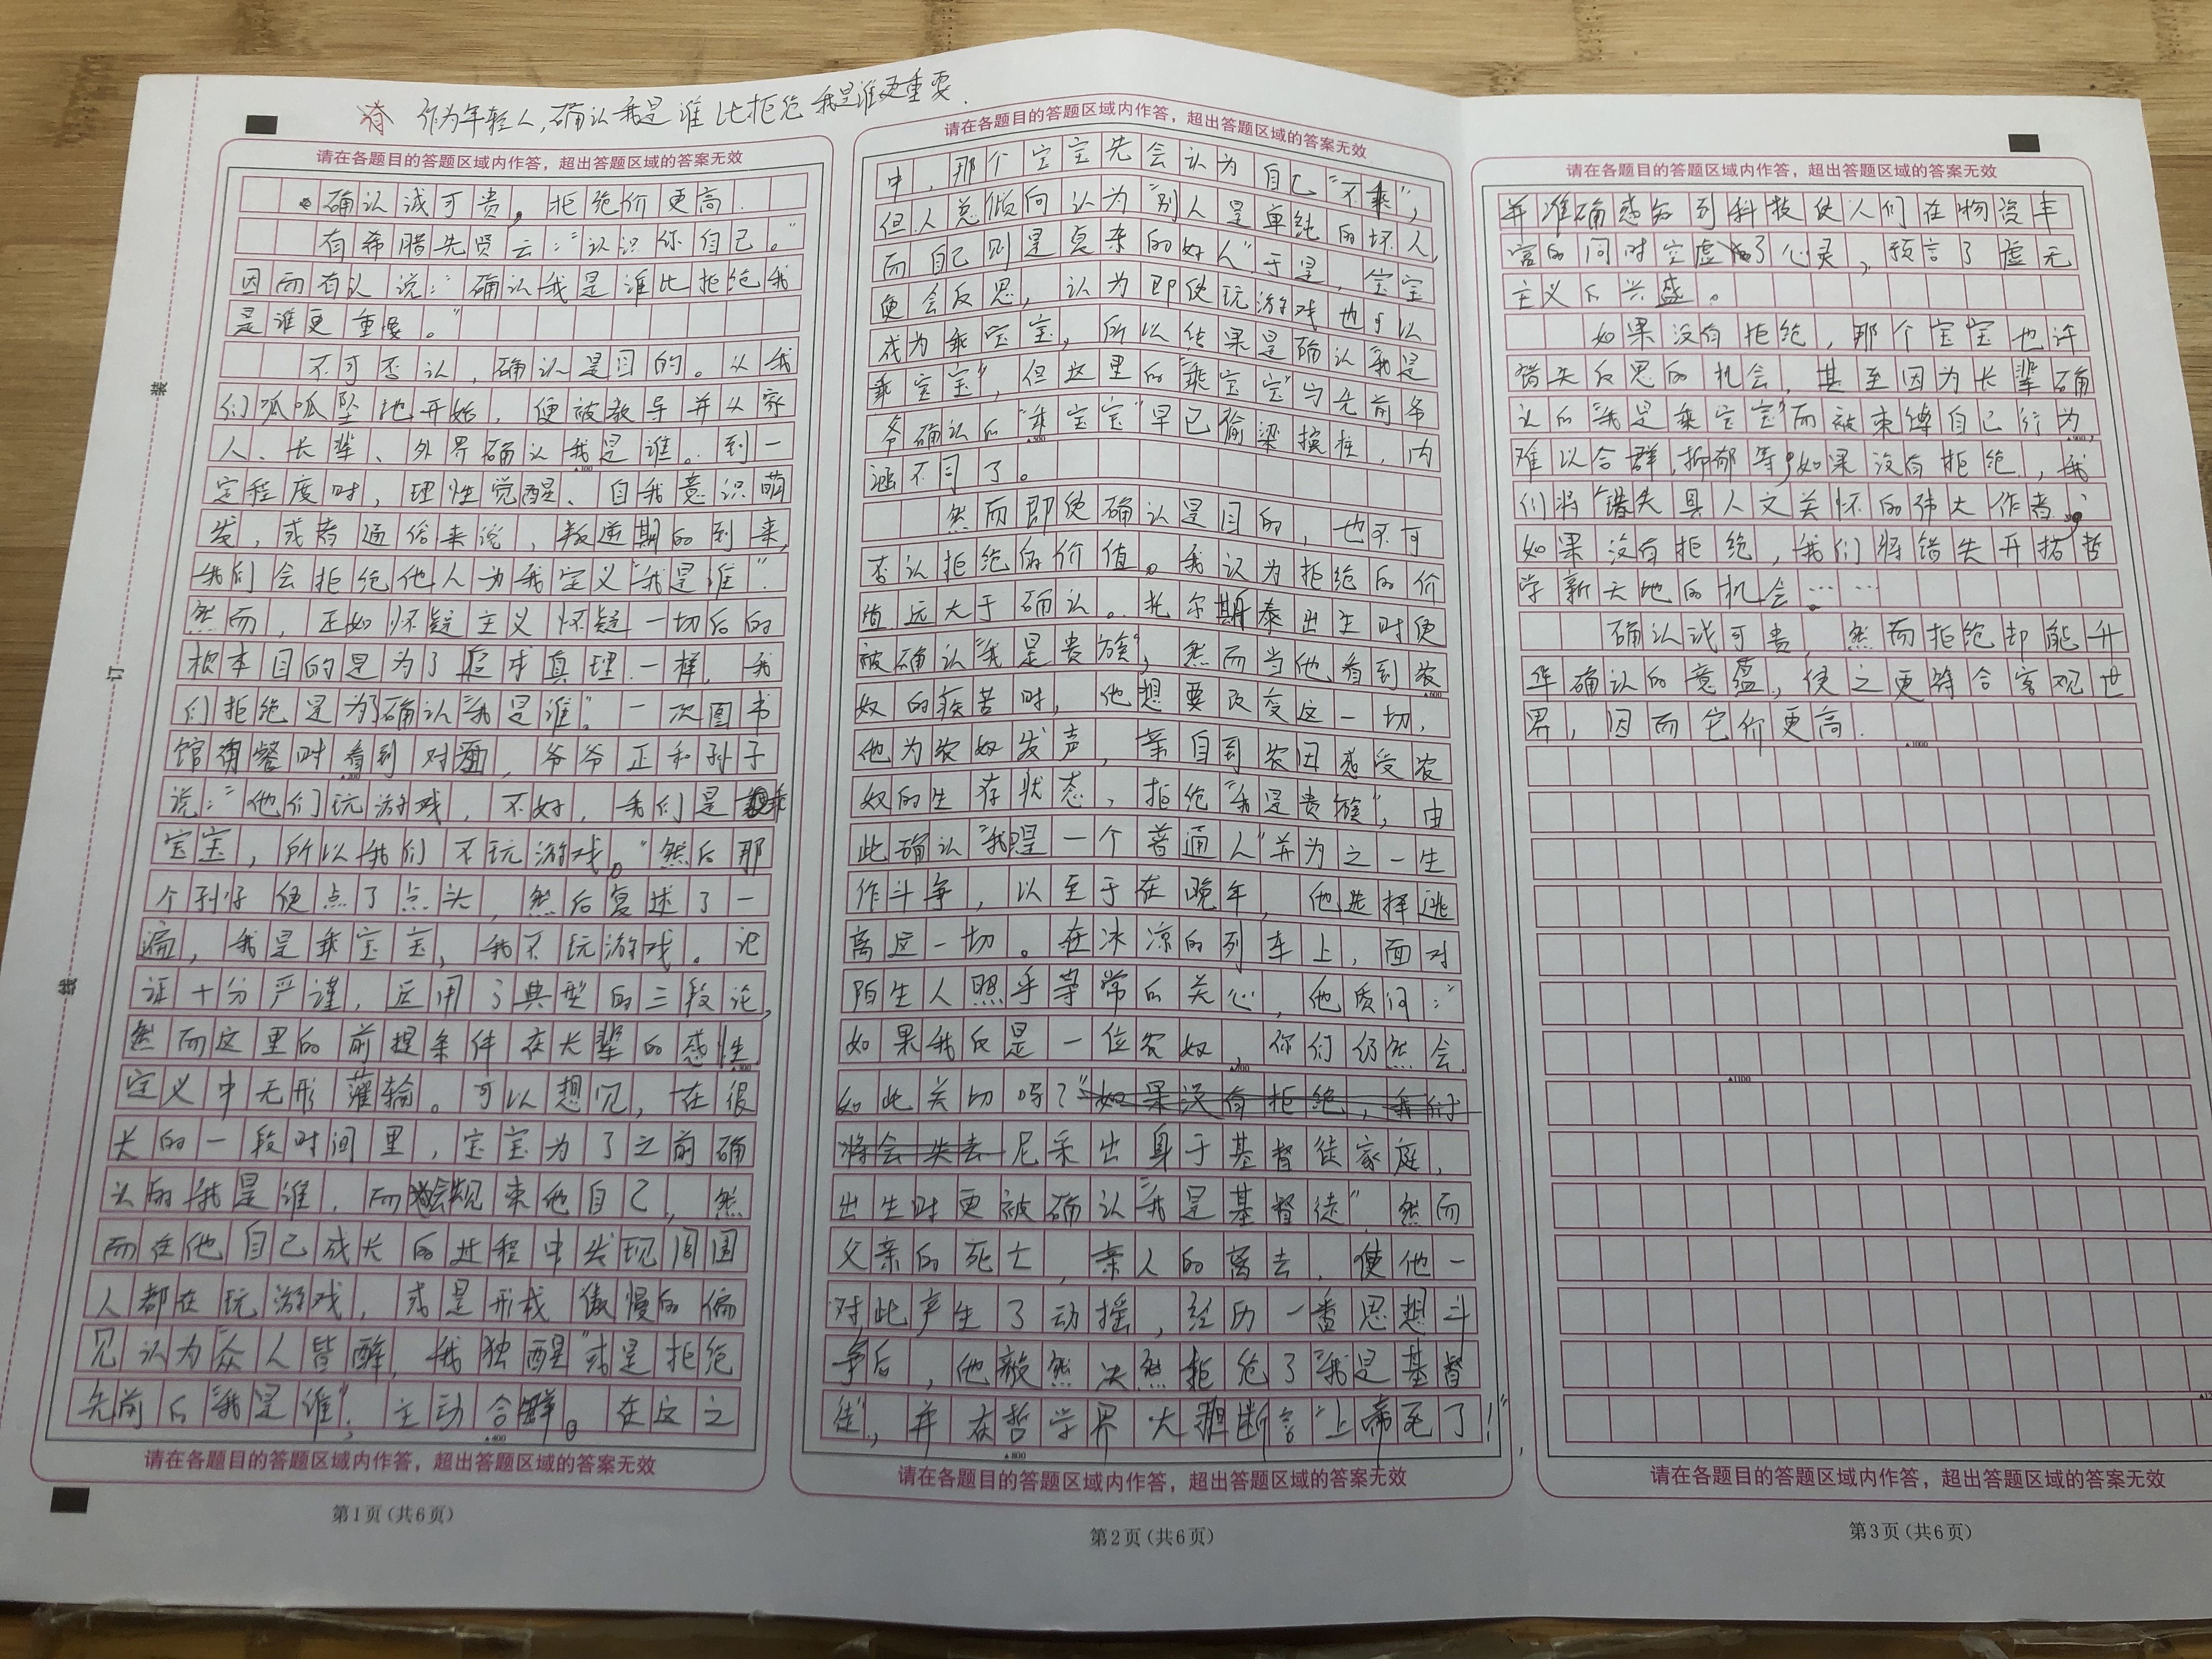 作为年轻人，确认我是谁比拒绝我是谁更重要．
请在各题目的答题区域内作答，超出答题区域的答案无效
确认诚可贵，拒绝价更高．
有希腊先贤云：“认识你自己。”
因而有认说：“确认我是谁比拒绝我
是谁更重要。”
不可否认，确认是目的。从我
们呱呱坠地开始，便被教导并从家
人、长辈、外界确认我是谁。到一
定程度时，理性觉醒、自我意识萌
发，或者通俗来说，叛逆期的到来，
我们会拒绝他人为我定义“我是谁”．
然而，正如怀疑主义怀疑一切后的
根本目的是为了追求真理一样，我
们拒绝是为了确认“我是谁”。一次图书
馆用餐时看到对面，爷爷正和孙子
说：“他们玩游戏，不好，我们是乖
宝宝，所以我们不玩游戏。”然后那
个孙子便点了点头，然后复述了一
遍，我是乖宝宝，我不玩游戏。论
证十分严谨，运用了典型的三段论，
然而这里的前提条件在长辈的感性
定义中无形灌输。可以想见，在很
长的一段时间里，宝宝为了之前确
认的我是谁，而会规束他自己，然
而在他自己成长的过程中发现周围
人都在玩游戏，或是形成傲慢的偏
见认为“众人皆醉，我独醒”或是拒绝
先前的“我是谁”，主动合群。在这之
▲100
▲200
▲300
▲400
请在各题目的答题区域内作答，超出答题区域的答案无效
第1页(共6页)
装
订
线
请在各题目的答题区域内作答，超出答题区域的答案无效
中，那个宝宝先会认为自己“不乖”，
但人总倾向认为“别人是单纯的坏人，
而自己则是复杂的好人”于是，宝宝
便会反思，认为即使玩游戏也可以
成为乖宝宝，所以结果是确认“我是
乖宝宝”，但这里的“乖宝宝”与先前爷
爷确认的“乖宝宝”早已偷梁换柱，内
涵不同了。
然而即使确认是目的，也不可
否认拒绝的价值。我认为拒绝的价
值远大于确认。托尔斯泰出生时便
被确认“我是贵族”，然而当他看到农
奴的疾苦时，他想要改变这一切，
他为农奴发声，亲自到农田感受农
奴的生存状态，拒绝“我是贵族”，由
此确认“我是一个普通人”并为之一生
作斗争，以至于在晚年，他选择逃
离这一切。在冰凉的列车上，面对
陌生人照乎等常的关心，他质问：“
如果我仅是一位农奴，你们仍然会
如此关切吗？”如果没有拒绝，我们
将会失去尼采出身于基督徒家庭，
出生时更被确认“我是基督徒”，然而
父亲的死亡，亲人的离去，使他一
对此产生了动摇，经历一番思想斗
争后，他毅然决然拒绝了“我是基督
徒”，并在哲学界大胆断言“上帝死了！”，
▲500
▲600
▲700
▲800
请在各题目的答题区域内作答，超出答题区域的答案无效
第2页(共6页)
请在各题目的答题区域内作答，超出答题区域的答案无效
并准确感知到科技使人们在物资丰
富的同时空虚了心灵，预言了虚无
主义的兴盛。
如果没有拒绝，那个宝宝也许
错失反思的机会，甚至因为长辈确
认的“我是乖宝宝”而被束缚自己行为，
难以合群，抑郁等；如果没有拒绝，我
们将错失具人文关怀的伟大作者；
如果没有拒绝，我们将错失开拓哲
学新天地的机会……
确认诚可贵，然而拒绝却能升
华确认的意蕴，使之更符合客观世
界，因而它价更高．
▲900
▲1000
▲1100
请在各题目的答题区域内作答，超出答题区域的答案无效
第3页(共6页)